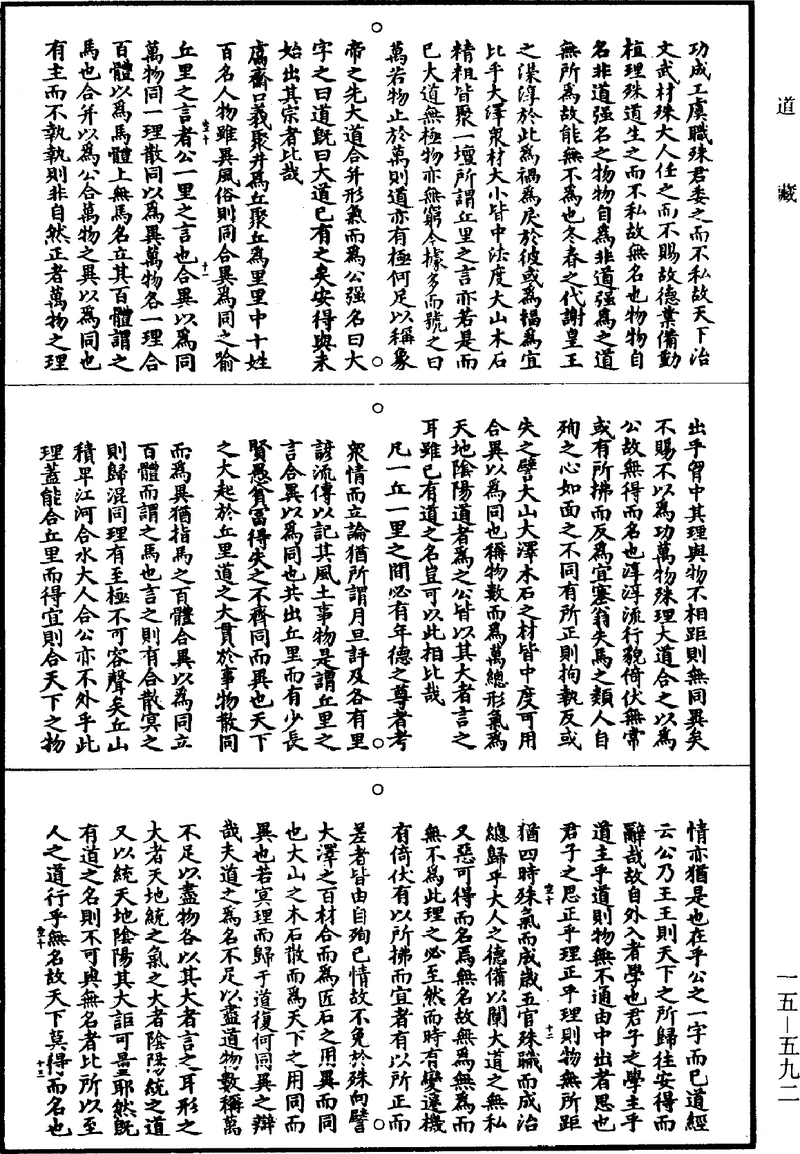 道藏
功成工虞職殊君委之而不私故天下治
文武材殊大人任之而不賜故德業備動
植理殊道生之而不私故無名也物物自
名非道強名之物物自為非道強為之道
無所為故能無不為也冬春之代謝皇王
之澆淳於此為禍為戾於彼或為福為宜
比乎大澤眾材大小皆中法度大山木石
精粗皆聚一壇所謂丘里之言亦若是而
已大道無極物亦無窮今據多而號之曰
萬若物止於萬則道亦有極何足以稱象
帝之先大道合并形氣而為公強名曰大
字之曰道既曰大道已有之矣安得與未
始出其宗者比哉
鬳齋口義聚井為丘聚丘為里里中十姓
百名人物雖異風俗則同合異為同之喻
丘里之言者公一里之言也合異以為同
萬物同一理散同以為異萬物各一理合
百體以為馬體上無馬名立其百體謂之
馬也合并以為公合萬物之異以為同也
有主而不執執則非自然正者萬物之理
出乎胷中其理與物不相距則無同異矣
不賜不以為功萬物殊理大道合之以為
公故無得而名也淳淳流行貌倚伏無常
或有所拂而反為宜塞翁失馬之類人自
殉之心如面之不同有所正則拘執反或
失之譬大山大澤木石之材皆中度可用
合異以為同也稱物數而為萬總形氣為
天地陰陽道者為之公皆以其大者言之
耳雖已有道之名豈可以此相比哉
凡一丘一里之間必有年德之尊者考
眾情而立論猶所謂月旦評及各有里
諺流傳以記其風土事物是謂丘里之
言合異以為同也共出丘里而有少長
賢愚貧富得失之不齊同而異也天下
之大起於丘里道之大貫於事物散同
而為異猶指馬之百體合異以為同立
百體而謂之馬也言之則有合散冥之
則歸混同理有至極不可容聲矣丘山
積卑江河合水大人合公亦不外乎此
理蓋能合丘里而得宜則合天下之物
情亦猶是也在乎公之一字而已道經
云公乃王王則天下之所歸往安得而
辭哉故自外入者學也君子之學主乎
道主乎道則物無不通由中出者思也
君子之思正乎理正乎理則物無所距
猶四時殊氣而成歲五官殊職而成治
總歸乎大人之德備以闡大道之無私
又惡可得而名焉無名故無為無為而
無不為此理之必至然而時有變遷機
有倚伏有以所拂而宜者有以所正而
差者皆由自殉已情故不免於殊向譬
大澤之百材合而為匠石之用異而同
也大山之木石散而為天下之用同而
異也若冥理而歸于道復何同異之辯
哉夫道之為名不足以盡道物數稱萬
不足以盡物各以其大者言之耳形之
大者天地統之氣之大者陰陽統之道
又以統天地陰陽其大詎可量耶然既
有道之名則不可與無名者比所以至
人之道行乎無名故天下莫得而名也
一五—五九二